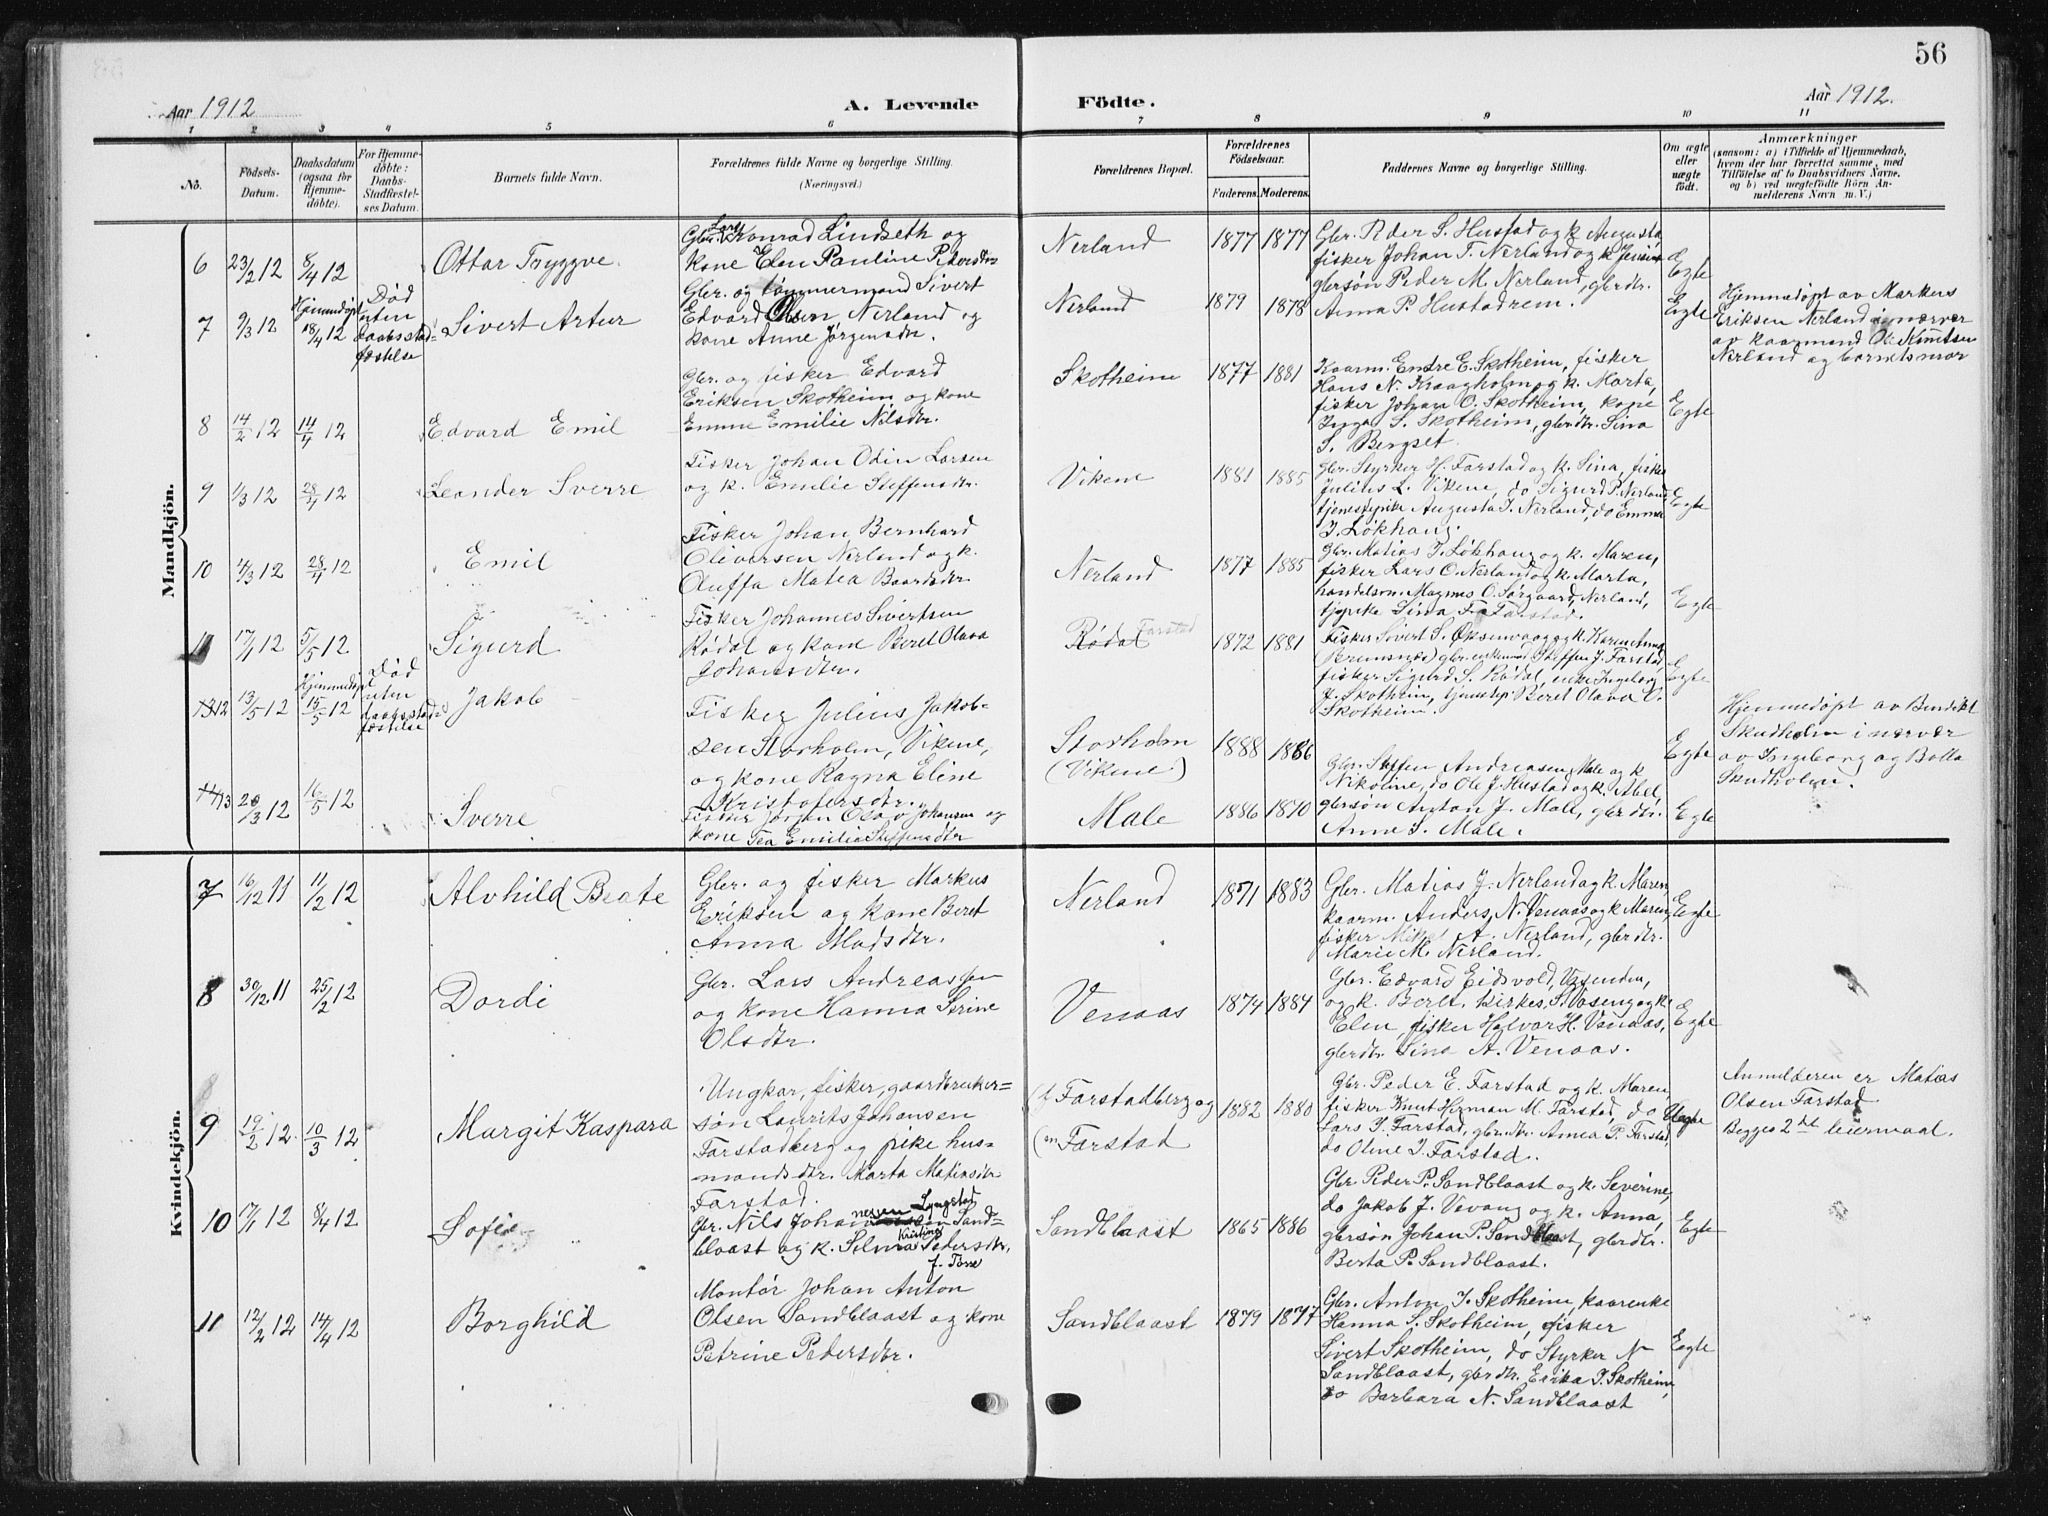 56
Aar 1912
A. Levende
Födte.
Aar 1912.
1 2 3 4 5 6 7 8 9 10 11
No.
Födsels-Datum.
Daabsdatum (ogsaa for Hjemme-döbte).
For Hjemme-döbte: Daabs-Stadfæstel-ses Datum.
Barnets fulde Navn.
Forældrenes fulde Navne og borgerlige Stilling.
(Næringsvei.)
Forældrenes Bopæl.
Forældrenes Födselsaar.
Faderens. Moderens.
Faddernes Navne og borgerlige Stilling.
Om ægte eller uægte födt.
Anmærkninger
(saasom: a) i Tilfælde af Hjemmedaab,
hvem der har forrettet samme, med
Tilföielse af to Daabsvidners Navne,
og b) ved uægtefödte Börn An-
melderens Navn m. V.)
Mandkjön.
6 23/2 12 8/4 12 Ottar Tryggve.
Gbr. Lars Konrad Lindseth og
kone Elen Pauline Pedersdtr
Nerland 1877 1877
Gbr. Peder S. Hustad og k. Augusta,
fisker Johan T. Nerland og k. Jensine
gbrsøn Peder M. Nerland, gbrdtr.
Anna P. Hustadrem.
Egte
7 9/3 12 Hjemmedøpt 18/4 12 Død uten daabsstadfæstelse
Sivert Artur
Gbr. og tømmermand Sivert
Edvard Olsen Nerland og
kone Anne Jørgensdtr.
Nerland 1879 1878 Egte
Hjemmedøpt av Markus
Eriksen Nerland i nærvær
av kaarmand Ole Knutsen
Nerland og barnets mor
8 14/2 12 14/4 12 Edvard Emil
Gbr. og fisker Edvard
Eriksen Skotheim og kone
Emma Emilie Nilsdtr.
Skotheim 1877 1881
Kaarm. Endre E. Skotheim, fisker
Hans N. Kraagholm og k. Marta,
fisker Johan O. Skotheim, kone
Inga S. Skotheim, gbrdtr. Sina
S. Bergset.
Egte
9 1/3 12 28/4 12 Leander Sverre
Fisker Johan Odin Larsen
og k. Emilie Steffensdtr.
Vikene 1881 1885
Gbr. Styrker H. Farstad og k. Sina, fisker
Julius L. Vikene, do Sigurd P. Nerland
tjenestepike Augusta I. Nerland, do Emma
I. Løkhaug.
Egte
10 4/3 12 28/4 12 Emil
Fisker Johan Bernhard
Oliversen Nerland og k.
Oluffa Matea Baardsdtr
Nerland 1877 1885
Gbr. Matias I. Løkhaug og k. Maren,
fisker Lars O. Nerland og k. Marta,
handelsm. Magnus O. Sørgaard, Nerland,
tjpike Sina F. Farstad.
Egte
11 17/1 12 5/5 12 Sigurd
Fisker Johannes Sivertsen
Rødal og kone Beret Olava
Johansdtr.
Rødal Farstad 1872 1881
Fisker Sivert S. Øksenvaag og k. Karen Anna
(Bremsnes) gbr. enkemand Steffen J. Farstad
fisker Sigurd S. Rødal, enke Ingeborg
J. Skotheim, tjenestepi Beret Olava O.
Skotheim.
Egte
13 12 13/5 12 Hjemmedøpt 15/5 12 Død uten daabsstadfæstelse
Jakob
Fisker Julius Jakob-
sen Storholm, Vikene,
og kone Ragna Eline
Kristofersdtr.
Storholm
(Vikene)
1888 1886 Egte
Hjemmedøpt av Bendikt
Skudholm i nærvær
av Ingeborg og Bolla
Skudholm.
14 13 28/3 12 16/5 12 Sverre
Fisker Jørgen Olav Johansen og
kone Tea Emilie Steffensdtr
Male 1886 1890
Gbr. Steffen Andreasen Male og k
Nikoline, do Ole J. Hustad og k. Abel,
gbrsøn Anton J. Male, gbrdtr.
Anne S. Male.
Egte
Kvindekjön.
7 16/12 11 11/2 12 Alvhild Beate
Gbr. og fisker Markus
Eriksen og kone Beret
Anna Madsdtr.
Nerland 1871 1883
Gbr. Matias J. Nerland og k. Maren
kaarm. Anders N. Venaas og k. Maren,
fisker A. Nerland, gbrdtr.
Marie M. Nerland.
Egte
8 30/12 11 25/2 12 Dordi
Gbr. Lars Andreassen
og kone Hanna Serine
Olsdtr.
Venaas 1874 1884
Gbr. Edvard Eidsvold, Vasenden,
og k. Beret, kirkes. S. Vaseng og k.
Elen, fisker Halvor H. Venaas,
gbrdtr. Sina A. Venaas.
Egte
9 19/2 12 10/3 12 Margit Kaspara
Ungkar, fisker, gaardbruker=
søn Laurits Johansen
Farstadberg og pike hus-
mandsdtr. Marta Matiasdtr
Farstad.
(f Farstadberg og
(m Farstad
1882 1880
Gbr. Peder E. Farstad og k. Maren,
fisker Knut Herman M. Farstad, do
Lars I. Farstad, gbr. dtr. Anna P. Farstad
do Oline I. Farstad.
Uegte
Anmelderen er Matias
Olsen Farstad
Begges 2det leiermaal.
10 17/1 12 8/4 12 Sofie
Gbr. Nils Johannesen Lyngstad Sand=
blaast og k. Selma Kristine Pedersdtr.
f. Tøsse
Sandblaast 1865 1886
Gbr. Peder P. Sandblaast og k. Severine,
do Jakob J. Vevang og k. Anna,
gbrsøn Johan P. Sandblaast, gbrdtr.
Berta P. Sandblaast.
Egte
11 12/2 12 14/4 12 Borghild
Montør Johan Anton
Olsen Sandblaast og kone
Petrine Pedersdtr.
Sandblaast 1879 1877
Gbr. Anton I. Skotheim, kaarenke
Hanna I. Skotheim, fisker
Sivert Skotheim, do Styrker N
Sandblaast, gbrdtr. Erika I. Skotheim,
do Barbara N. Sandblaast
Egte